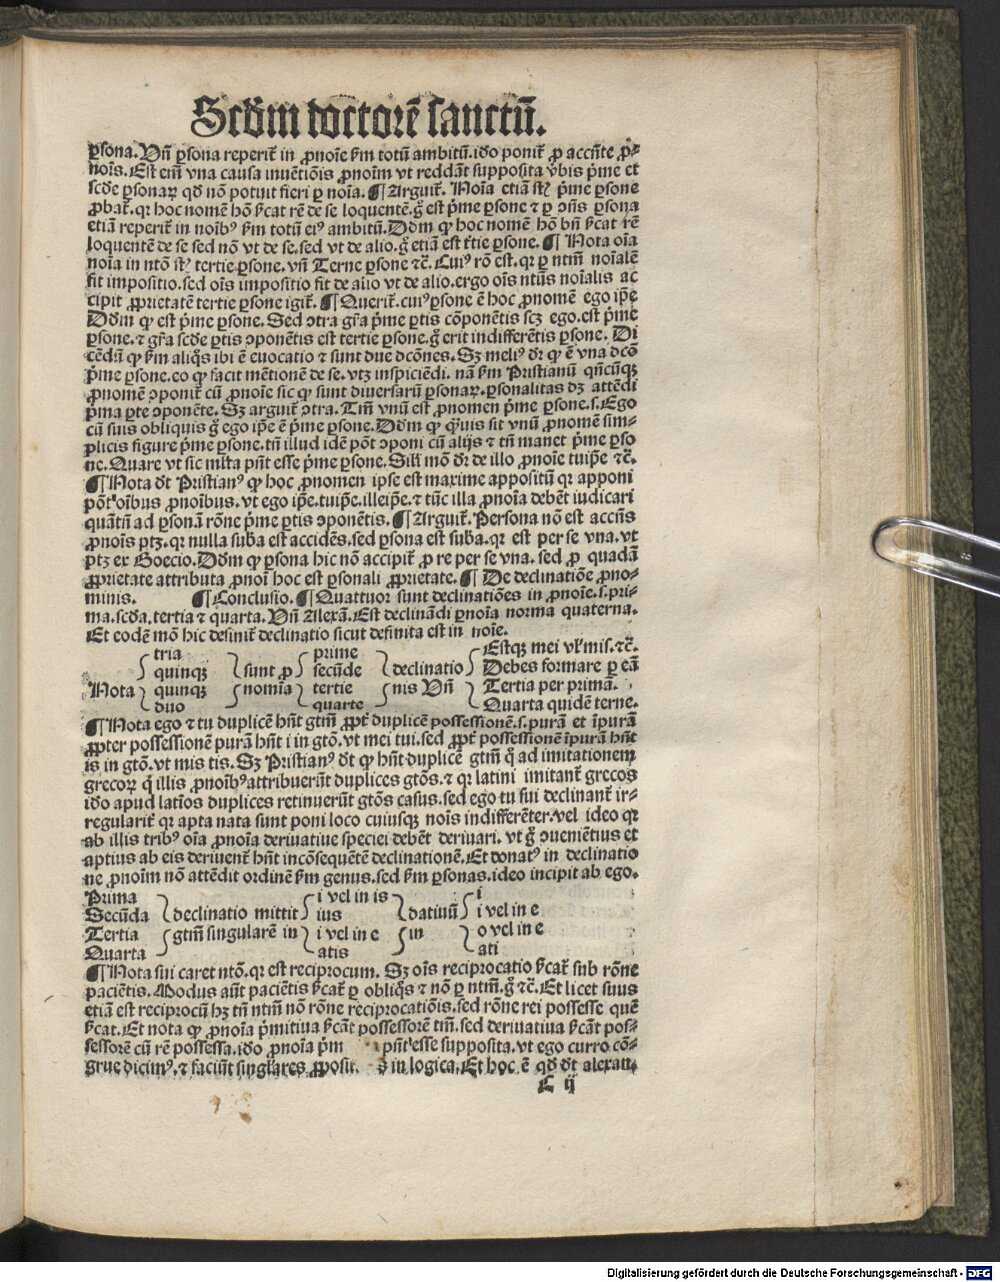 Scd̄m doctorē sanctū.
ꝑsona. Vn̄ ꝑsona reperit᷑ in ꝓnoīe ẜm totū ambitū. iđo ponit᷑ ꝓ accn̄te ꝓ⸗
noīs. Est em̄ vna causa inuētiōis ꝓnoīm vt reddāt supposita v̄bis p̄me et
scđe ꝑsonaꝝ qđ nō potuit fieri ꝑ noīa. ¶ Arguit᷑. Noīa etiā st̄ p̄me ꝑsone
ꝓbat᷑. qꝛ hoc nomē hō ẜcat rē de se loquentē. g̊ est p̄me ꝑsone ⁊ ꝑ ɔn̄s ꝑsona
etiā reperit᷑ in noībꝰ ẜm totū eiꝰ ambitū. Dōm ꝙ hoc nomē hō bn̄ ẜcat rē
loquentē de se sed nō vt de se. sed vt de alio. g̊ etiā est t̄tie ꝑsone. ¶ Nota oīa
noīa in ntō st̄ tertie ꝑsone. vn̄ Terne ꝑsone ⁊c̄. Cuiꝰ rō est. qꝛ ꝑ ntm̄ noīalē
fit impositio. sed oīs impositio fit de alio vt de alio. ergo oīs ntūs noīalis ac
cipit ꝓprietatē tertie ꝑsone igit᷑. ¶ Querit᷑. cuiꝰ ꝑsone ē hoc ꝓnomē ego ip̄e
Dōm ꝙ est p̄me ꝑsone. Sed ɔtra gr̄a p̄me ꝑtis cōponētis scꝫ ego. est p̄me
ꝑsone. ⁊ gr̄a scđe ꝑtis ɔponētis est tertie ꝑsone. g̊ erit indifferētis ꝑsone. Di
cēdū ꝙ ẜm aliq̄s ibi ē euocatio ⁊ sunt due dcōnes. Sꝫ meliꝰ dr̄ ꝙ ē vna dcō
p̄me ꝑsone. eo ꝙ facit mētionē de se. vtꝫ inspiciēdi. nā ẜm Pristianū qn̄cūqꝫ
ꝓnomē ɔponit᷑ cū ꝓnoīe sic ꝙ sunt diuersarū ꝑsonaꝝ. ꝑsonalitas dꝫ attēdi
p̄ma ꝑte ɔponēte. Sꝫ arguit᷑ ɔtra. Tm̄ vnū est ꝓnomen p̄me ꝑsone. s. Ego
cū suis obliquis g̊ ego ip̄e ē p̄me ꝑsone. Dōm ꝙ q̄uis sit vnū ꝓnomē sim⸗
plicis figure p̄me ꝑsone. tn̄ illud idē pōt ɔponi cū alijs ⁊ tn̄ manet p̄me ꝑso
ne. Quare vt sic ml̄ta pn̄t esse p̄me ꝑsone. Sil̄r mō dr̄ de illo ꝓnoīe tuip̄e ⁊c̄.
¶ Nota dt̄ Pristianꝰ ꝙ hoc ꝓnomen ipse est maxime appositiū qꝛ apponi
pōt oībus ꝓnoībus. vt ego ip̄e. tuip̄e. illeip̄e. ⁊ tūc illa ꝓnoīa debēt iudicari
quātū ad ꝑsonā rōne p̄me ꝑtis ɔponētis. ¶ Arguit᷑. Persona nō est accn̄s
ꝓnoīs ptꝫ. qꝛ nulla sub̄a est accidēs. sed ꝑsona est sub̄a. qꝛ est per se vna. vt
ptꝫ ex Boecio. Dōm ꝙ ꝑsona hic nō accipit᷑ ꝓ re per se vna. sed ꝓ quadā
ꝓprietate attributa ꝓnoī hoc est ꝑsonali ꝓprietate. ¶ De declinatiōe ꝓno⸗
minis. ¶ Conclusio. ¶ Quattuor sunt declinatiōes in ꝓnoīe. s. pri⸗
ma. scđa. tertia ⁊ quarta. Vn̄ Alexā. Est declinādi ꝓnoīa norma quaterna.
Et eodē mō hic definit᷑ declinatio sicut definita est in noīe.
tria prime Estqꝫ mei vl̄ mis. ⁊c̄.
quinqꝫ sunt ꝓ secūde declinatio Debes formare ꝑ eā
Nota quinqꝫ nomīa tertie nis Vn̄ Tertia per primā.
duo quarte Quarta quidē terne.
¶ Nota ego ⁊ tu duplicē hn̄t gtm̄ ꝓpt᷑ duplicē possessionē. s. purā et īpurā
ꝓpter possessionē purā hn̄t i in gtō. vt mei tui. sed ꝓpt᷑ possessionē īpurā hn̄t
is in gtō. vt mis tis. Sꝫ Pristianꝰ dt̄ ꝙ hn̄t duplicē gtm̄ q̄ ad imitationem
grecoꝝ q̇ illis ꝓnoībꝰ attribuerūt duplices gtōs. ⁊ qꝛ latini imitant᷑ grecos
iđo apud latīos duplices retinuerūt gtōs casus. sed ego tu sui declinant᷑ ir⸗
regularit᷑ qꝛ apta nata sunt poni loco cuiusqꝫ noīs indifferēter. vel ideo qꝛ
ab illis tribꝰ oīa ꝓnoīa deriuatiue speciei debēt deriuari. vt g̊ ɔueniētius et
aptius ab eis deriuent᷑ hn̄t incōsequētē declinationē. Et donatꝰ in declinatio
ne ꝓnoīm nō attēdit ordinē ẜm genus. sed ẜm ꝑsonas. ideo incipit ab ego.
Prima i vel in is i
Secūda declinatio mittit ius datiuū i vel in e
Tertia gtm̄ singularē in i vel in e in o vel in e
Quarta atis ati
¶ Nota sui caret ntō. qꝛ est reciprocum. Sꝫ oīs reciprocatio ẜcat᷑ sub rōne
paciētis. Modus aūt paciētis ẜcat᷑ ꝑ obliq̄s ⁊ nō ꝑ ntm̄. g̊ ⁊c̄. Et licet suus
etiā est reciprocū hꝫ tn̄ ntm̄ nō rōne reciprocatiōis. sed rōne rei possesse quē
ẜcat. Et nota ꝙ ꝓnoīa p̄mitiua ẜcāt possessorē tm̄. sed deriuatiua ẜcāt pos⸗
sessorē cū rē possessa. iđo ꝓnoīa p̄m pn̄t esse supposita. vt ego curro cō⸗
grue dicimꝰ. ⁊ faciūt singl̄ares ꝓposit in logica. Et hoc ē qđ dt̄ alexan.
C ij
Digitalisierung gefördert durch die Deutsche Forschungsgemeinschaft - DFG